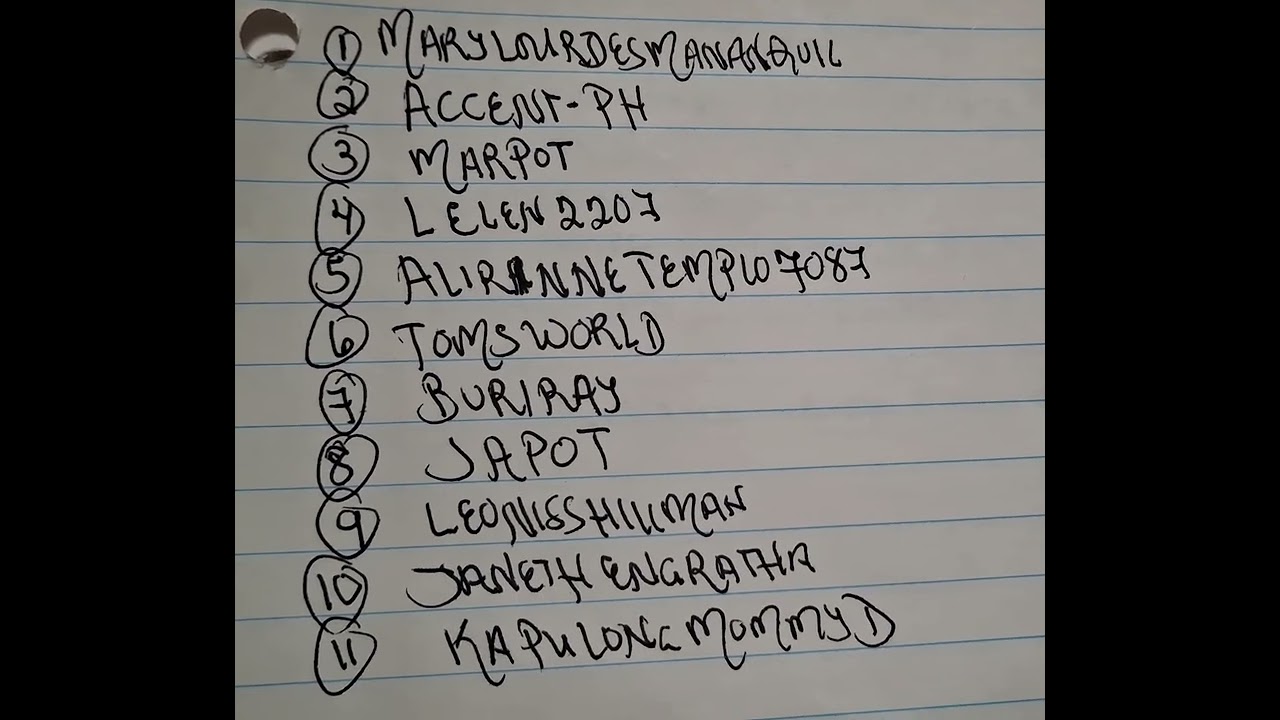 1 MARYLOURDESMANANQUIL
2 ACCENT-PH
3 MARPOT
4 LELEN2207
5 ALIRANNETEMPLO7087
6 TOMSWORLD
7 BURIRAY
8 JAPOT
9 LEONIESHILLMAN
10 JANETH ENGRATHA
11 KAPULONG MOMMY D